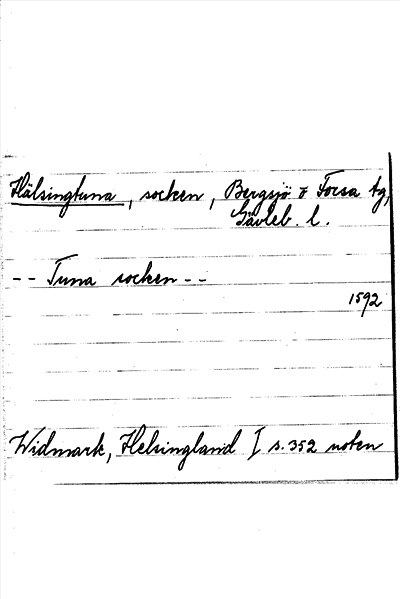 Hälsingtuna, socken, Bergsjö o Forsa tg,
Gävleb. l.
-- Tuna socken --
1592
Widmark, Helsingland I s. 352 noten